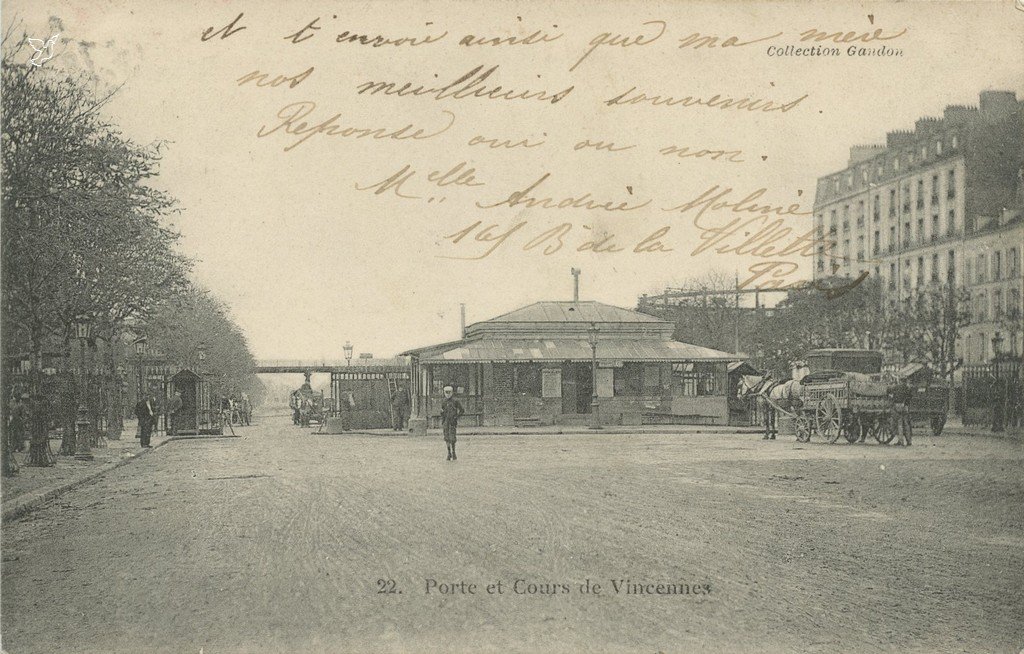 et t'envoie ainsi que ma mère
Collection Gaudon
nos meilleurs souvenirs.
Reponse oui ou non.
Mlle Andrée Moliné
165 Bd de la Villette
Paris
22. Porte et Cours de Vincennes